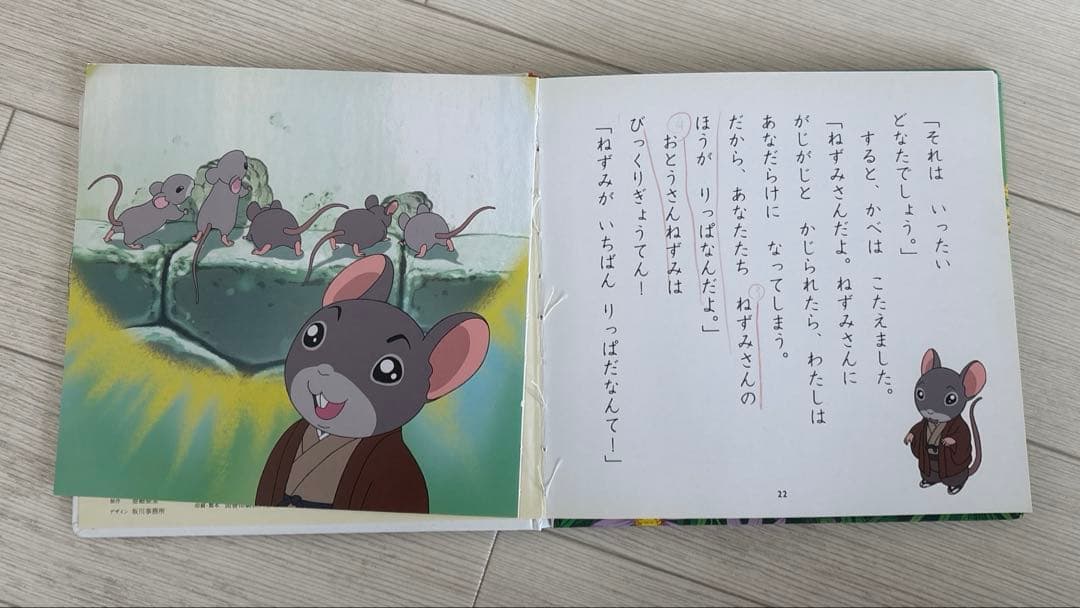 「それは　いったい
どなたでしょう。」
　すると、かべは　こたえました。
「ねずみさんだよ。ねずみさんに
がじがじと　かじられたら、わたしは
あなだらけに　なってしまう。
だから、あなたたち　ねずみさんの
ほうが　りっぱなんだよ。」
　おとうさんねずみは
びっくりぎょうてん！
「ねずみが　いちばん　りっぱだなんて！」
22
デザイン　坂川事務所